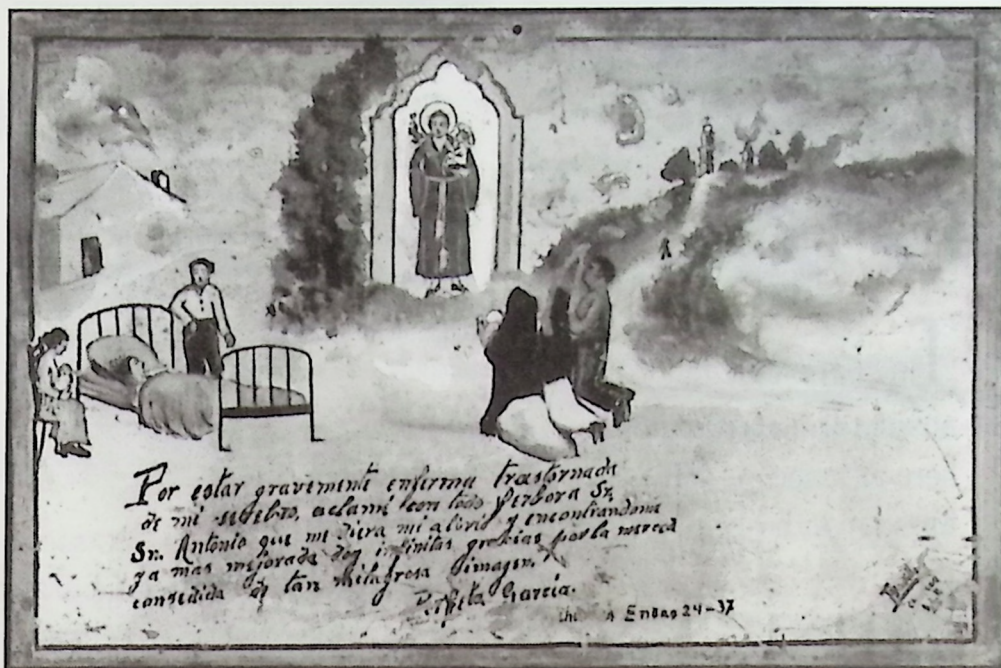 Por estar gravemente enferma trastornada
de mi selebro, aclamé con todo Ferbor a Sr.
Sn. Antonio que me diera mi alivio y encontrandome
ya mas mejorada doy infinitas grasias por la merced
consedida de tan milagrosa Ymagen.
García.
A Enero 24-37